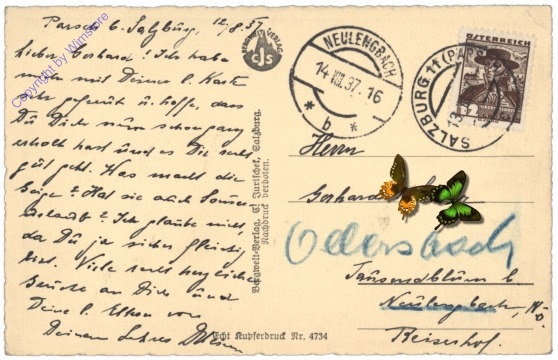 Parsch b. Salzburg, 12./8. 37
Lieber Gerhard! Ich habe
mich mit Deiner l. Karte
sehr gefreut u. hoffe, dass
Du Dich nun schon ganz
erholt hast und es Dir recht
gut geht. Was macht die
Geige? Hat sie auch
Ich glaube nicht,
da Du ja sicher fleissig
bist. Viele recht herzliche
Grüsse an Dich und
Deine l. Eltern von
Deinem Lehrer
Copyright by Wimstore
BERGWELT VERLAG
CJS
Bergwelt-Verlag, C. Jurischek, Salzburg.
Nachdruck verboten.
Echt Kupferdruck Nr. 4734
NEULENGBACH
14.VIII.37.16
* b *
SALZBURG 11 (PAR
13.
ÖSTERREICH
Herrn
Gerhard
Odersbach
Tausendblum b.
Neulengbach, N.Ö.
Reiserhof.